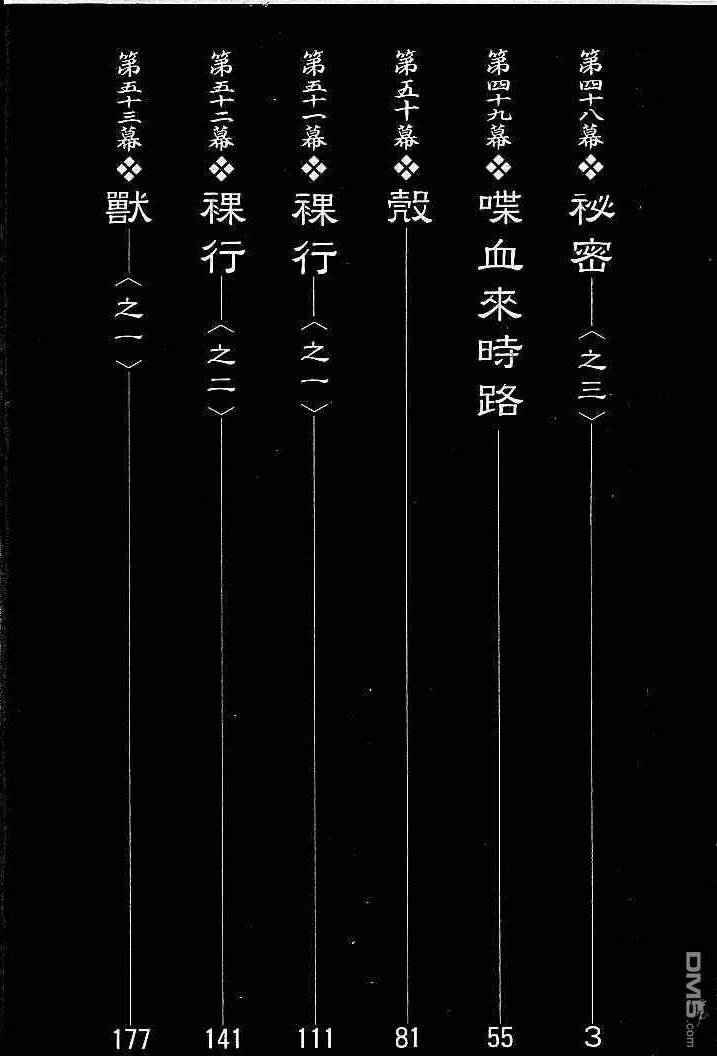 第四十八幕❖祕密―〈之三〉 3
第四十九幕❖喋血來時路 55
第五十幕❖殼 81
第五十一幕❖裸行―〈之一〉 111
第五十二幕❖裸行―〈之二〉 141
第五十三幕❖獸―〈之一〉 177
DM5.com